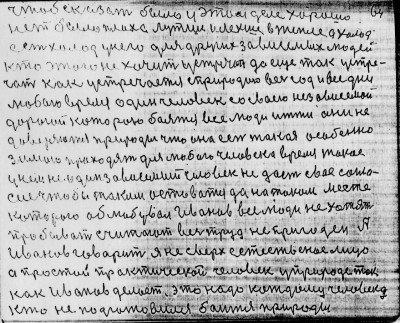 чтоб сказать было у этом деле хорошо 64
нет было плоха лутши и легши в жизне а холод
есть холод у него для других зависемых людей
кто этого не хочит устречат да еще так устре-
чат как устречается с природаю весь год и все дни
любою время один человек со своею независемой
дорогой которою баятся все люди итти они не
доверяются природи что она есть такая особенно
зимою приходят для любого человека время такое
у нем не один зависемый человек не даст свое согла-
сие чтобы таким оставатца на таком месте
которого обмабувал Иванов все люди не хотят
пробывать считают весь труд не пригоден А
Иванов говарит я не сверх естественое лицо
а простой практической человек у природе так
как Иванов делает, это надо каждому человеку
кто не подготовился баятся природы